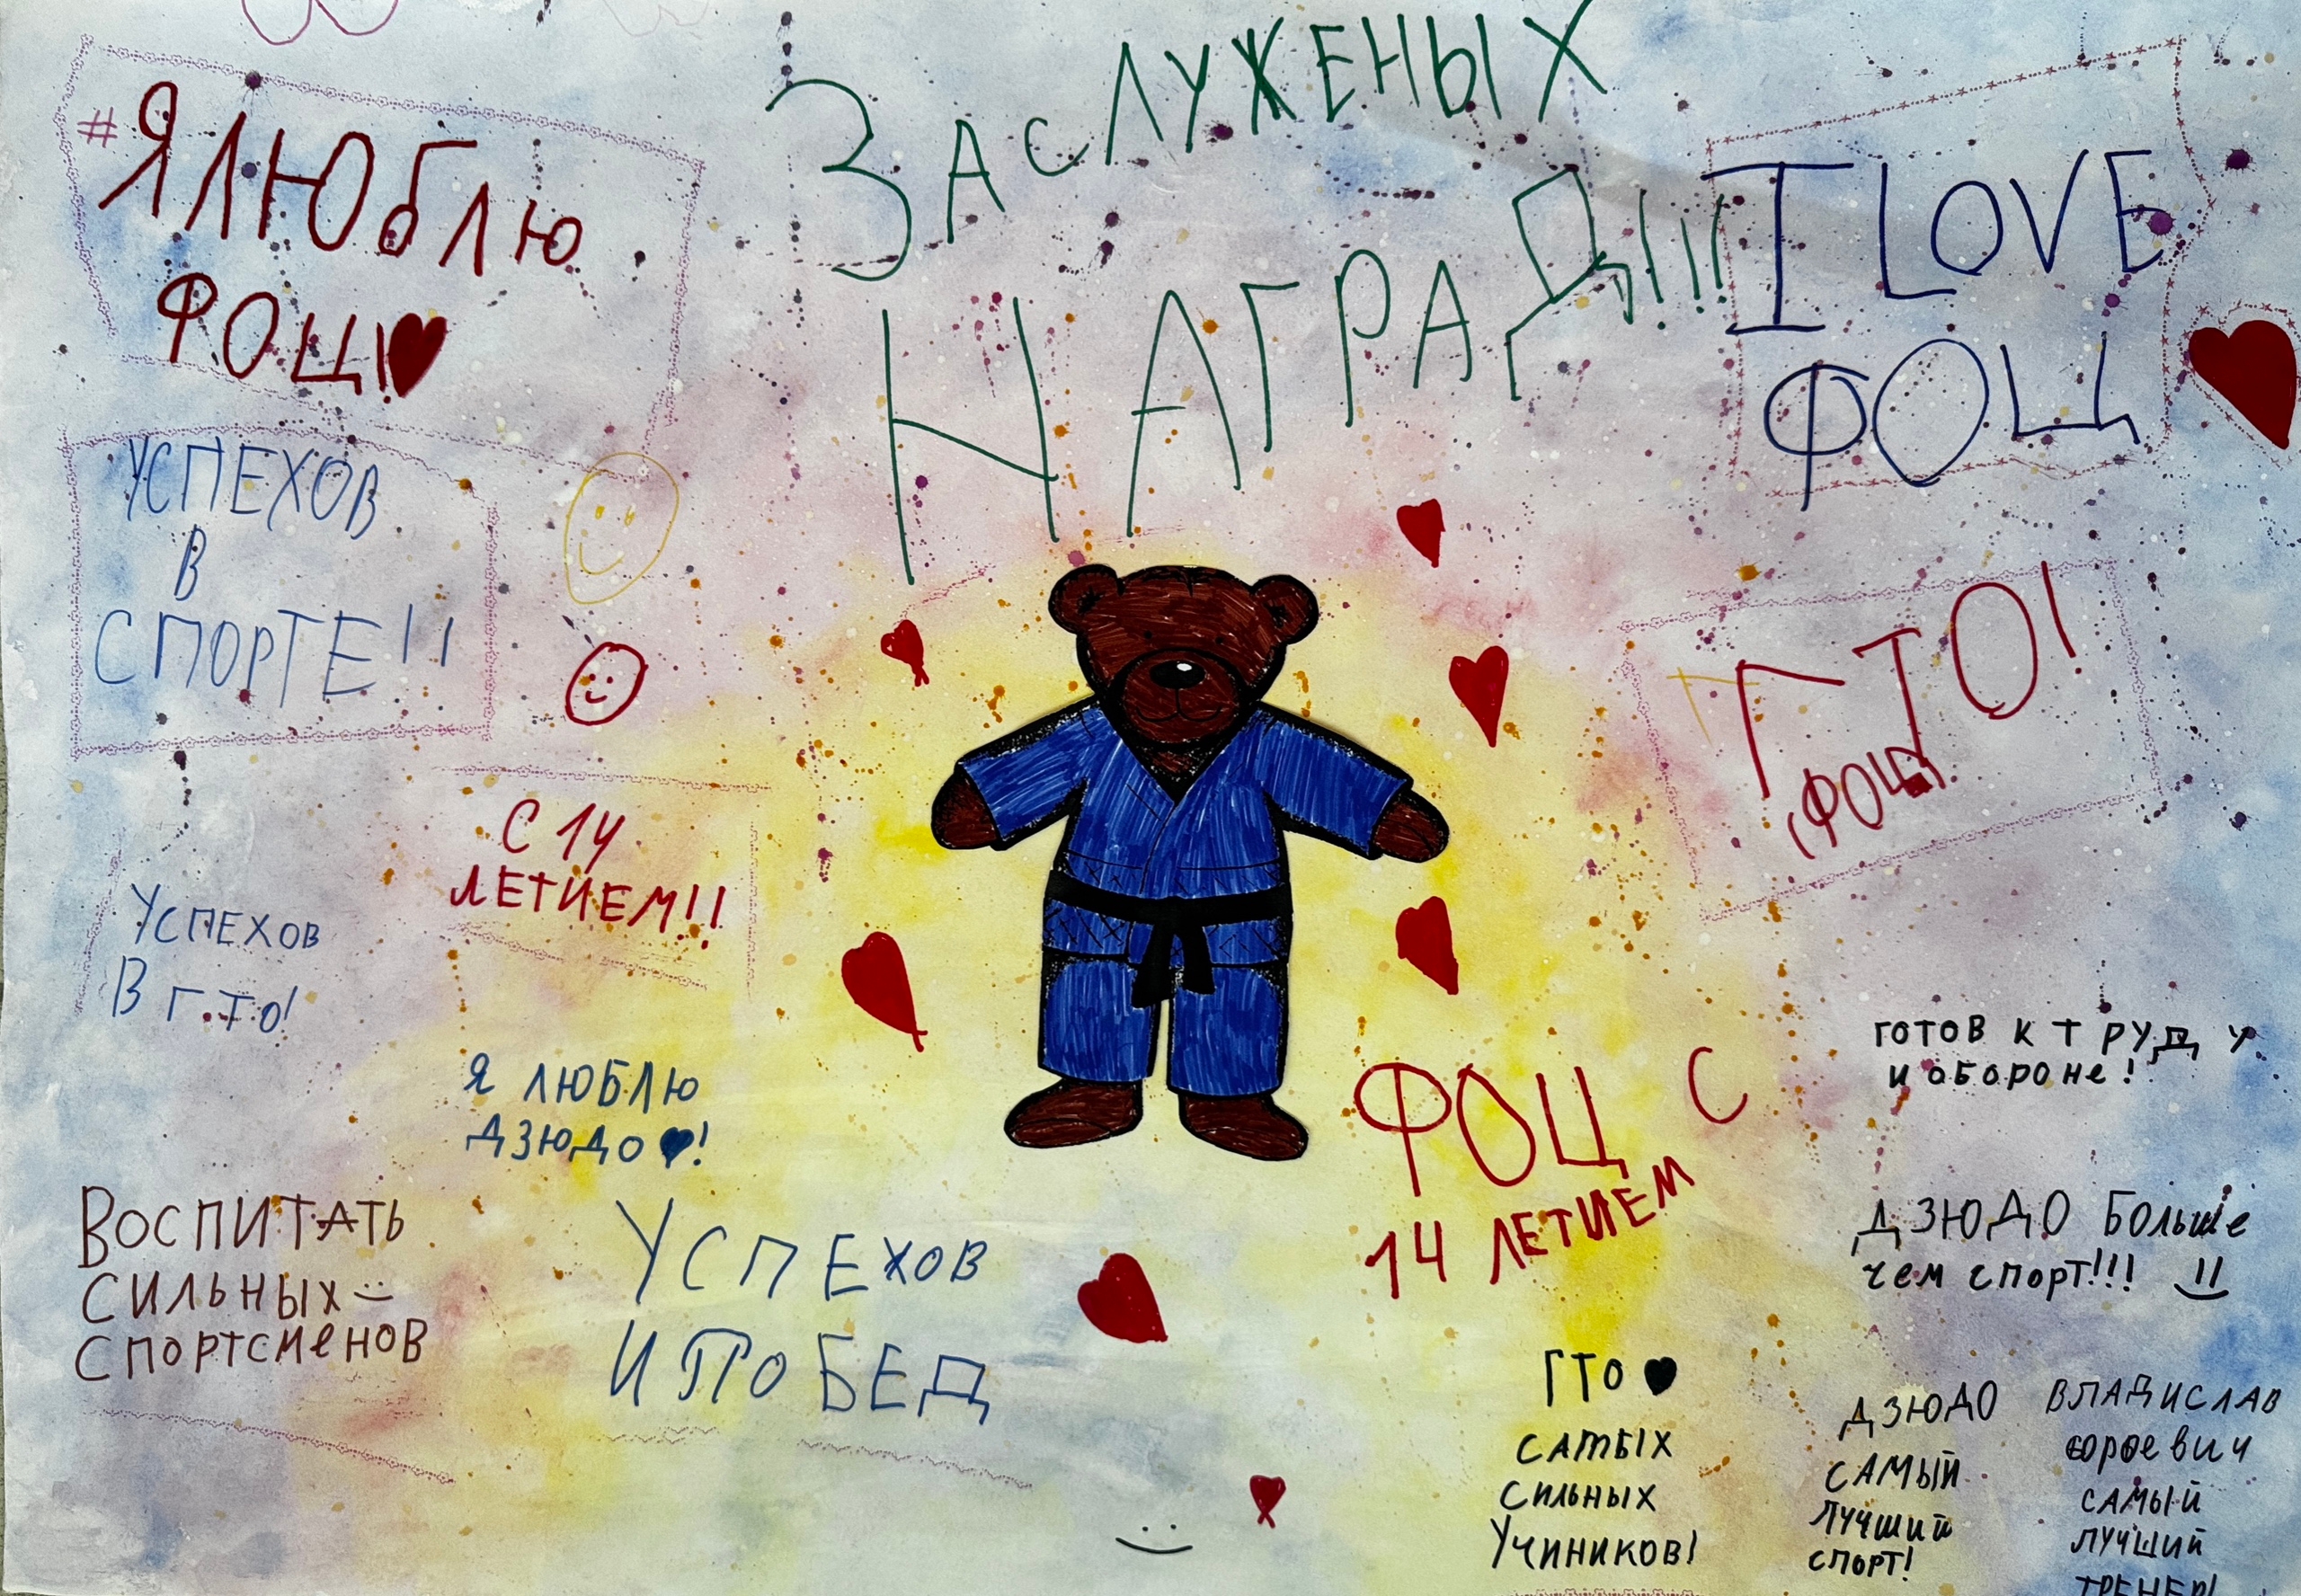 #ЯЛЮБЛЮ
ФОЦ!
ЗАСЛУЖЕНЫХ
НАГРАД!!!
I LOVE
ФОЦ
УСПЕХОВ
В
СПОРТЕ!!
ГТО!
(ФОЦ)
С 14
ЛЕТИЕМ!!
УСПЕХОВ
В Г.ТО!
Я ЛЮБЛЮ
ДЗЮДО!
ФОЦ С
14 ЛЕТИЕМ
ГОТОВ К ТРУДУ
И ОБОРОНе!
ВОСПИТАТЬ
СИЛЬНЫХ
СПОРТСМеНОВ
УСПЕХОВ
И ПОБЕД
ДЗЮДО Больше
чем спорт!!!
ГТО
САМЫХ
СИЛЬНЫХ
УЧИНИКОВ!
ДЗЮДО
САМЫЙ
ЛУЧШИЙ
СПОРТ!
ВЛАДИСЛАВ
САМЫЙ
ЛУЧШИЙ
ТРЕНЕР!